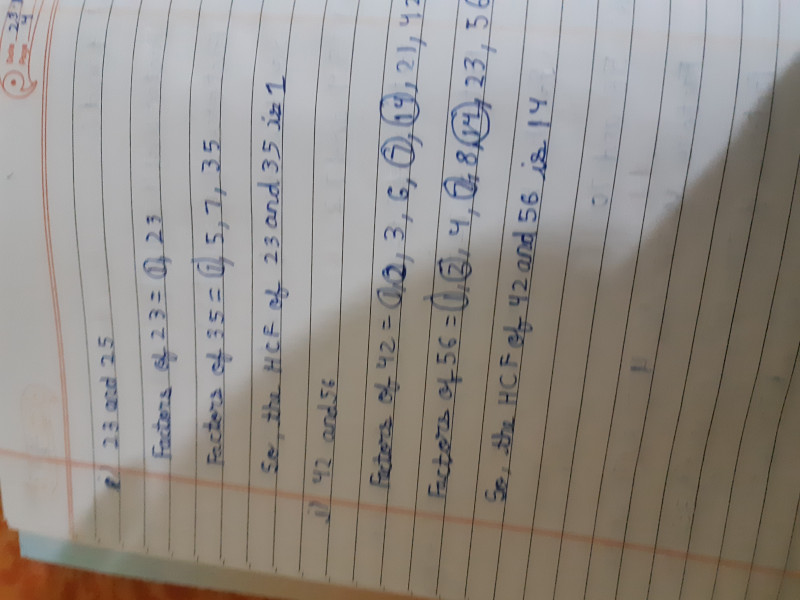 Date 23
Page 4
e) 23 and 25
Factors of 23 = 1, 23
Factors of 35 = 1, 5, 7, 35
So, the HCF of 23 and 35 is 1
i) 42 and 56
Factors of 42 = 1, 2, 3, 6, 7, 14, 21, 42
Factors of 56 = 1, 2, 4, 7, 8, 14, 23, 56
So, the HCF of 42 and 56 is 14